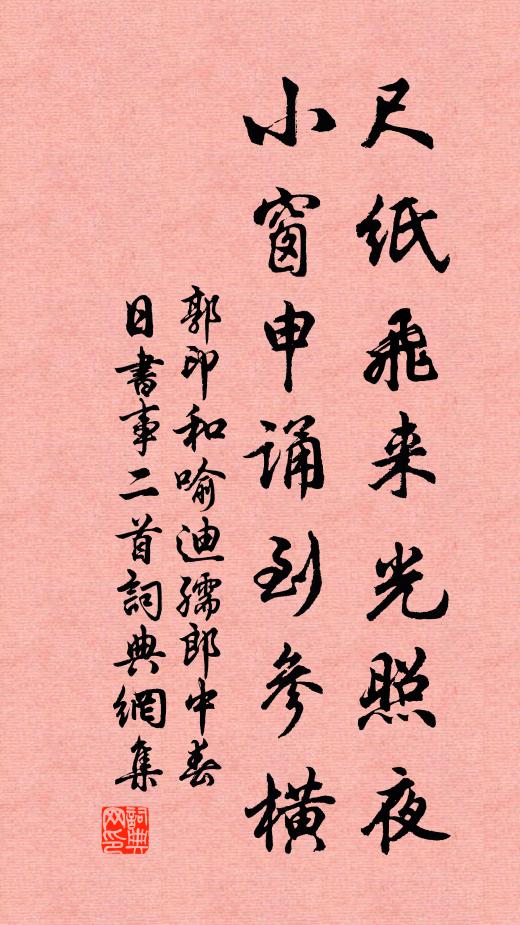 尺纸飛来光照夜
小窗申诵到參横
郭印和喻迪孺郎中春
日書事二首詞典網集
詞典
网印